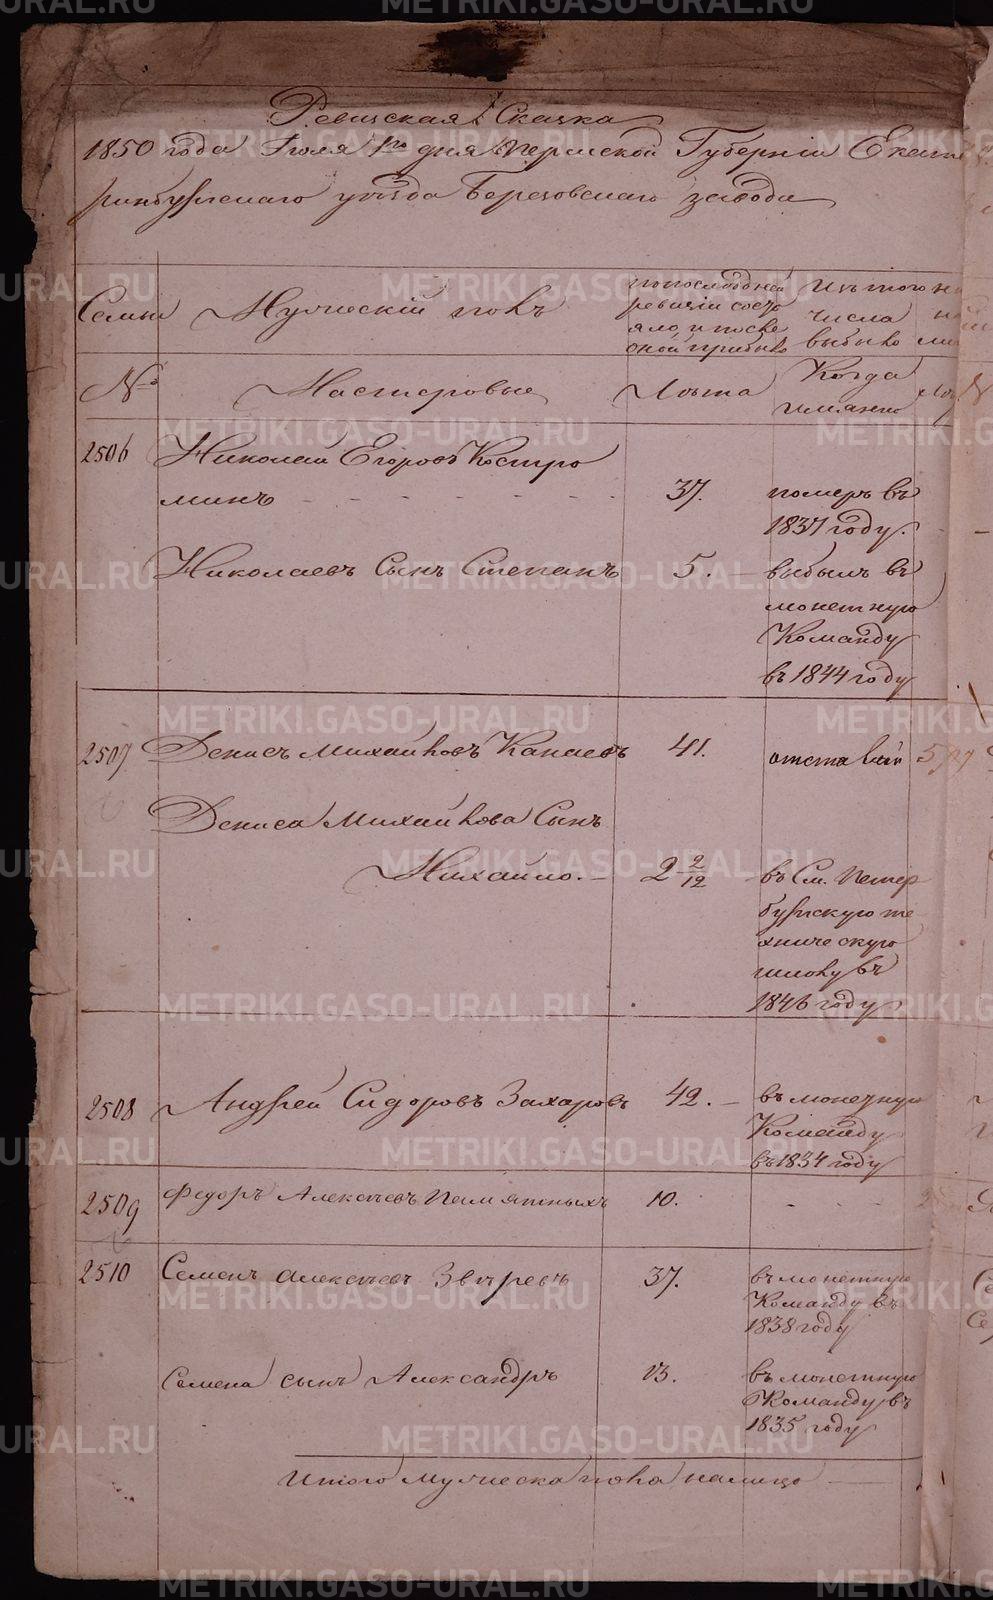 Ревизская Сказка
1850 года Июля 1го дня Пермской Губернии Екате
ринбургскаго уѣзда Березовскаго завода
Семьи
Мужескій полъ
по последней
ревизіи состо
яло, и после
оной прибыло
Изъ того
числа
выбыло
№
Мастеровые
Лѣта
Когда
имянно
2506 Николай Егоровъ Костро
минъ 37. померъ въ
1837 году.
Николаевъ Сынъ Степанъ 5. выбылъ въ
монетную
Команду
въ 1844 году
2507 Денисъ Михайловъ Канаевъ 41. отставной 57
Дениса Михайлова Сынъ
Михайло. 2 2/12 въ Ст. Петер
бургскую те
хническую
школу въ
1846 году
2508 Андрей Сидоровъ Захаровъ 42. въ монетную
Команду
въ 1834 году
2509 Федоръ Алексѣевъ Памятныхъ 10.
2510 Семенъ Алексѣевъ Звѣревъ 37. въ монетную
Команду въ
1838 году
Семена сынъ Александръ 13. въ монетную
Команду въ
1835 году
Итого мужеска пола налицо
METRIKI.GASO-URAL.RU